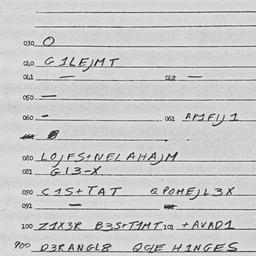 030 O
040 G1LEJMT
041 — 042 —
050 —
060 - 061 AP1EIJ1
080 LOJFS+NELAHAJM
081 GI3-X
090 C1S+TAT QPOMEJL3X
091 —
100 Z1X3R B3S+T1MT 101 +AVAD1
900 D3RANGL8 QCLE H1NGES